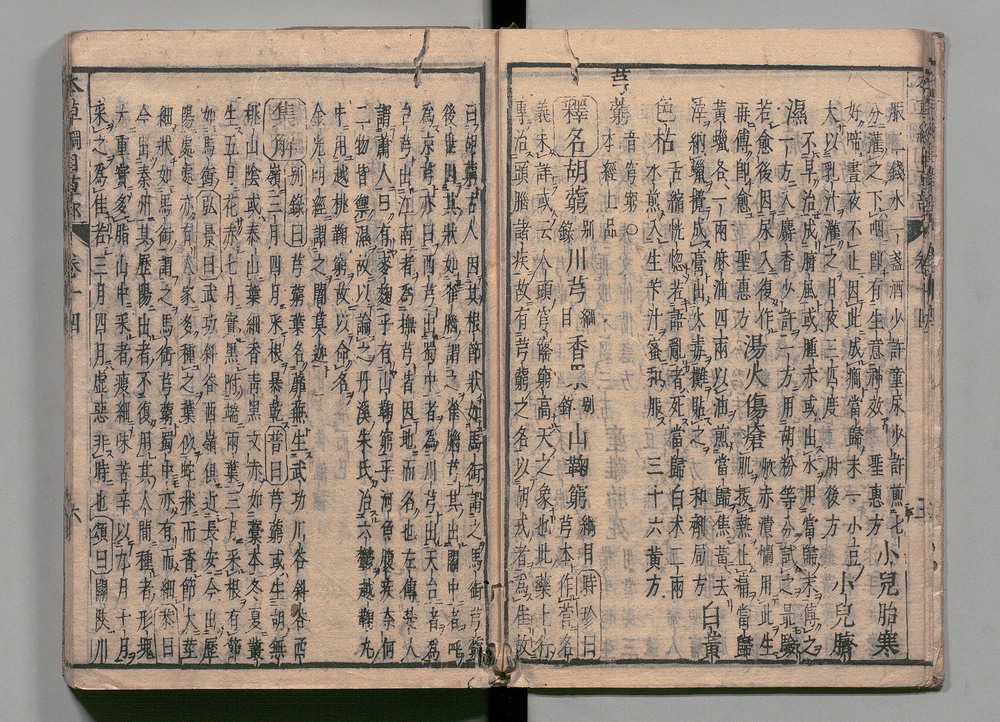 脤一錢水一盞酒少許童尿少許煎七
分灌之下咽即有生意神效聖惠方小兒胎寒
好啼晝夜不止因此成癇當歸末一小豆
大以乳汁灌之日夜三四度肘後方小兒臍
濕不早治成臍風或腫赤或出水用當歸末傅之
一方入麝香少許一方用胡粉等分試之最驗
若愈後因尿入復作
再傅即愈聖惠方湯火傷瘡焮赤潰爛用此生肌拔熱止痛當歸
黃蠟各一兩麻油四兩以油煎當歸焦黃去
滓納蠟攪成膏出火毒攤貼之和劑局方白黃
色枯舌縮恍惚若語亂者死當歸白朮二兩
水煎入生苄汁蜜和服三十六黃方
芎藭
音穹窮○本經上品
釋名胡藭別錄川芎綱目香果別錄山鞠藭綱目時珍曰芎本作营名
義未詳或云人頭穹窿窮高天之象也此藥上行
專治頭腦諸疾故有芎藭之名以胡戎者為佳故
曰胡藭古人因其根節狀如馬銜謂之馬銜芎藭
後世因其狀如雀腦謂之雀腦芎其出關中者呼
為京芎亦曰西芎出蜀中者為川芎出天台者為
台芎出江南者為撫芎皆因地而名也左傳楚人
謂蕭人曰有麥麯乎有山鞠窮乎河魚腹疾奈何
二物皆禦濕故以諭之丹溪朱氏治六鬱越鞠丸
中用越桃鞠窮故以命名
金光明經謂之闍莫迦
集解別錄曰芎藭葉名蘼蕪生武功川谷斜谷西
嶺三月四月采根暴乾普曰芎藭或生胡無
桃山陰或泰山葉細香青黑文赤如藁本冬夏叢
生五月花赤七月實黑附端兩葉三月采根有節
如馬銜弘景曰武功斜谷西嶺俱近長安今出歷
陽處處亦有人家多種之葉似蛇牀而香節大莖
細狀如馬銜謂之馬銜芎藭蜀中亦有而細恭曰
今出秦州其歷陽出者不復用其人間種者形塊
大重實多脂山中采者瘦細味苦辛以九月十月
采之為佳若三月四月虛惡非時也頌曰關陝川
本草綱目草部
卷十四
六